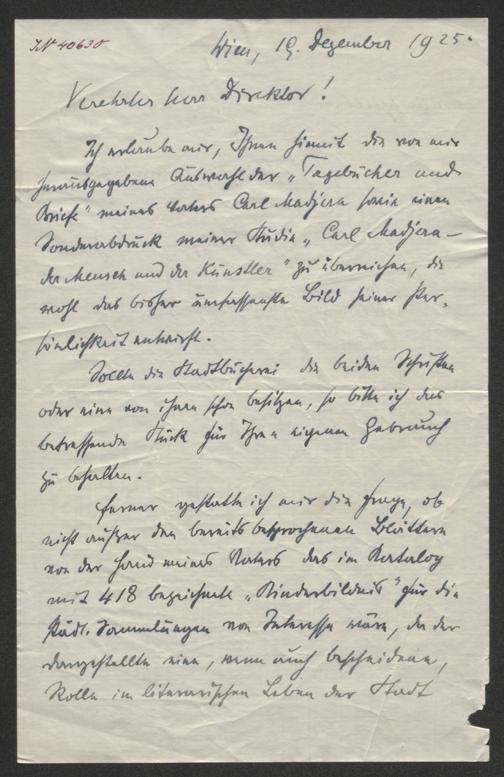 IN 40630
Wien, 19. Dezember 1925.
Verehrter Herr Direktor!
Ich erlaube mir, Ihnen hiemit die von mir
herausgegebene Auswahl der „Tagebücher und
Briefe" meines Vaters Carl Madjera sowie einen
Sonderabdruck meiner Studie „Carl Madjera –
der Mensch und der Künstler" zu überreichen, die
wohl das bisher umfassendste Bild seiner Per-
sönlichkeit entwirft.
Sollte die Stadtbücherei die beiden Schriften
oder eine von ihnen schon besitzen, so bitte ich das
betreffende Stück für Ihren eigenen Gebrauch
zu behalten.
Ferner gestatte ich mir die Frage, ob
nicht außer den bereits besprochenen Blättern
von der Hand meines Vaters das im Katalog
mit 418 bezeichnete „Kinderbildnis" für die
städt. Sammlungen von Interesse wäre, da der
Dargestellte eine, wenn auch bescheidene,
Rolle im literarischen Leben der Stadt